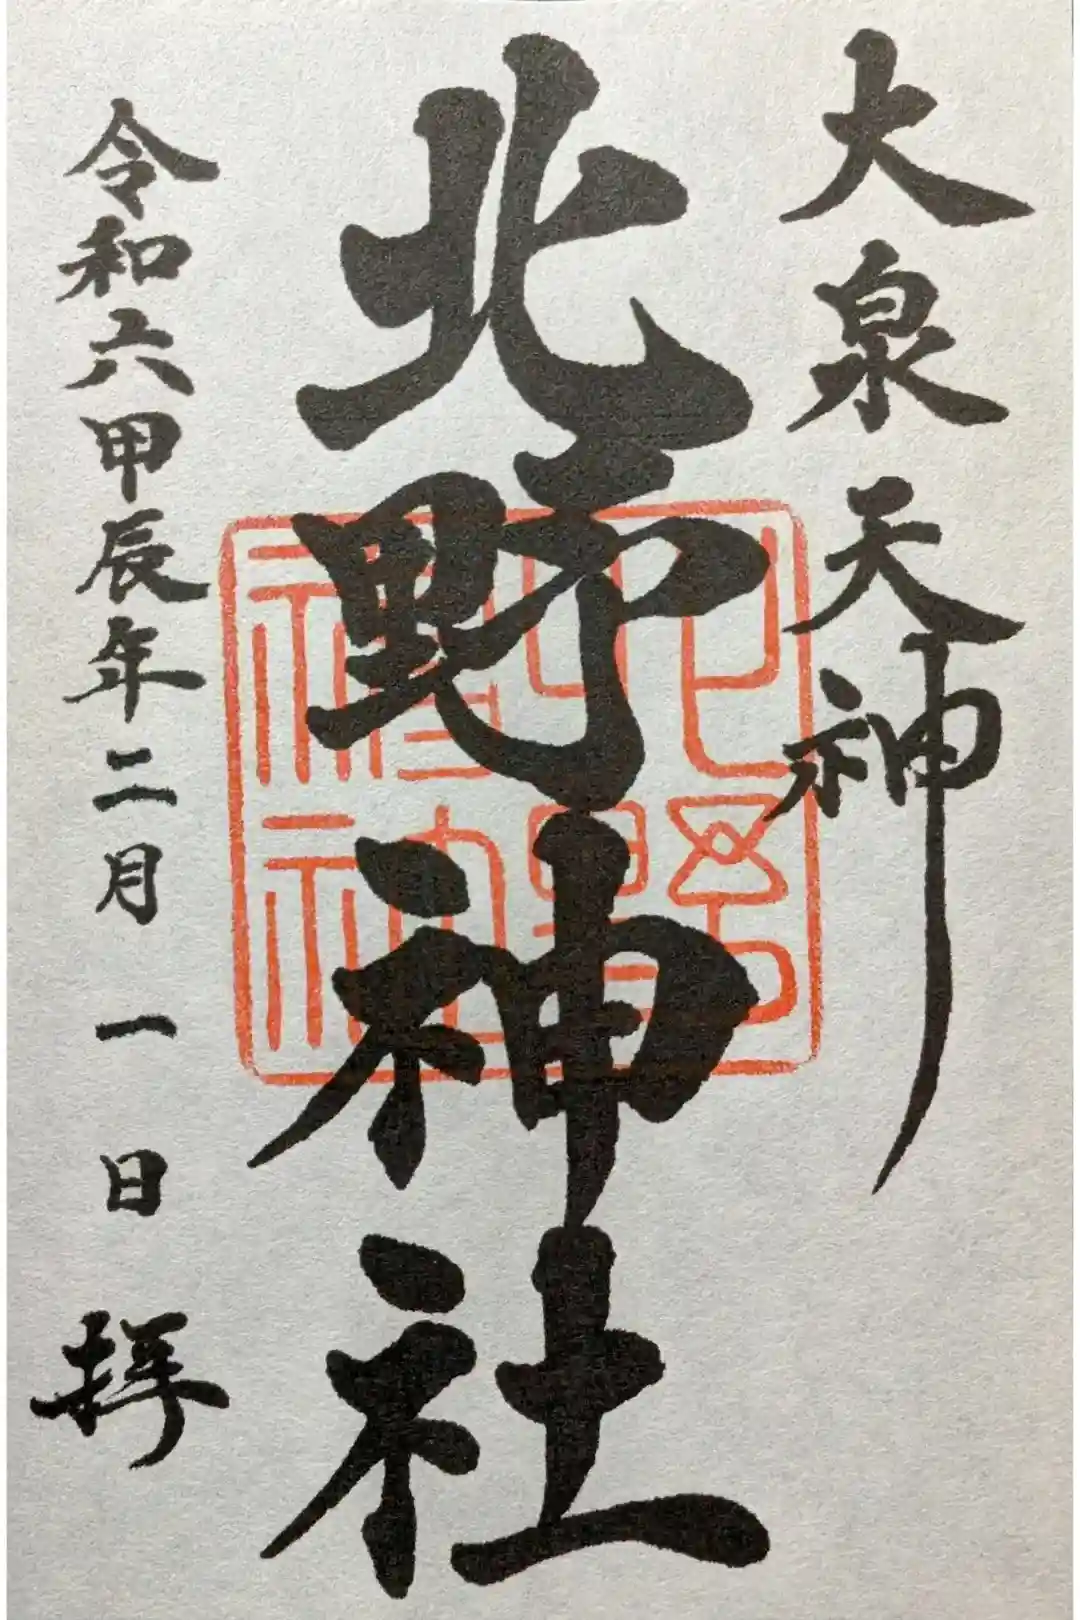 大泉天神
北野神社
北野神社
令和六甲辰年二月一日拝